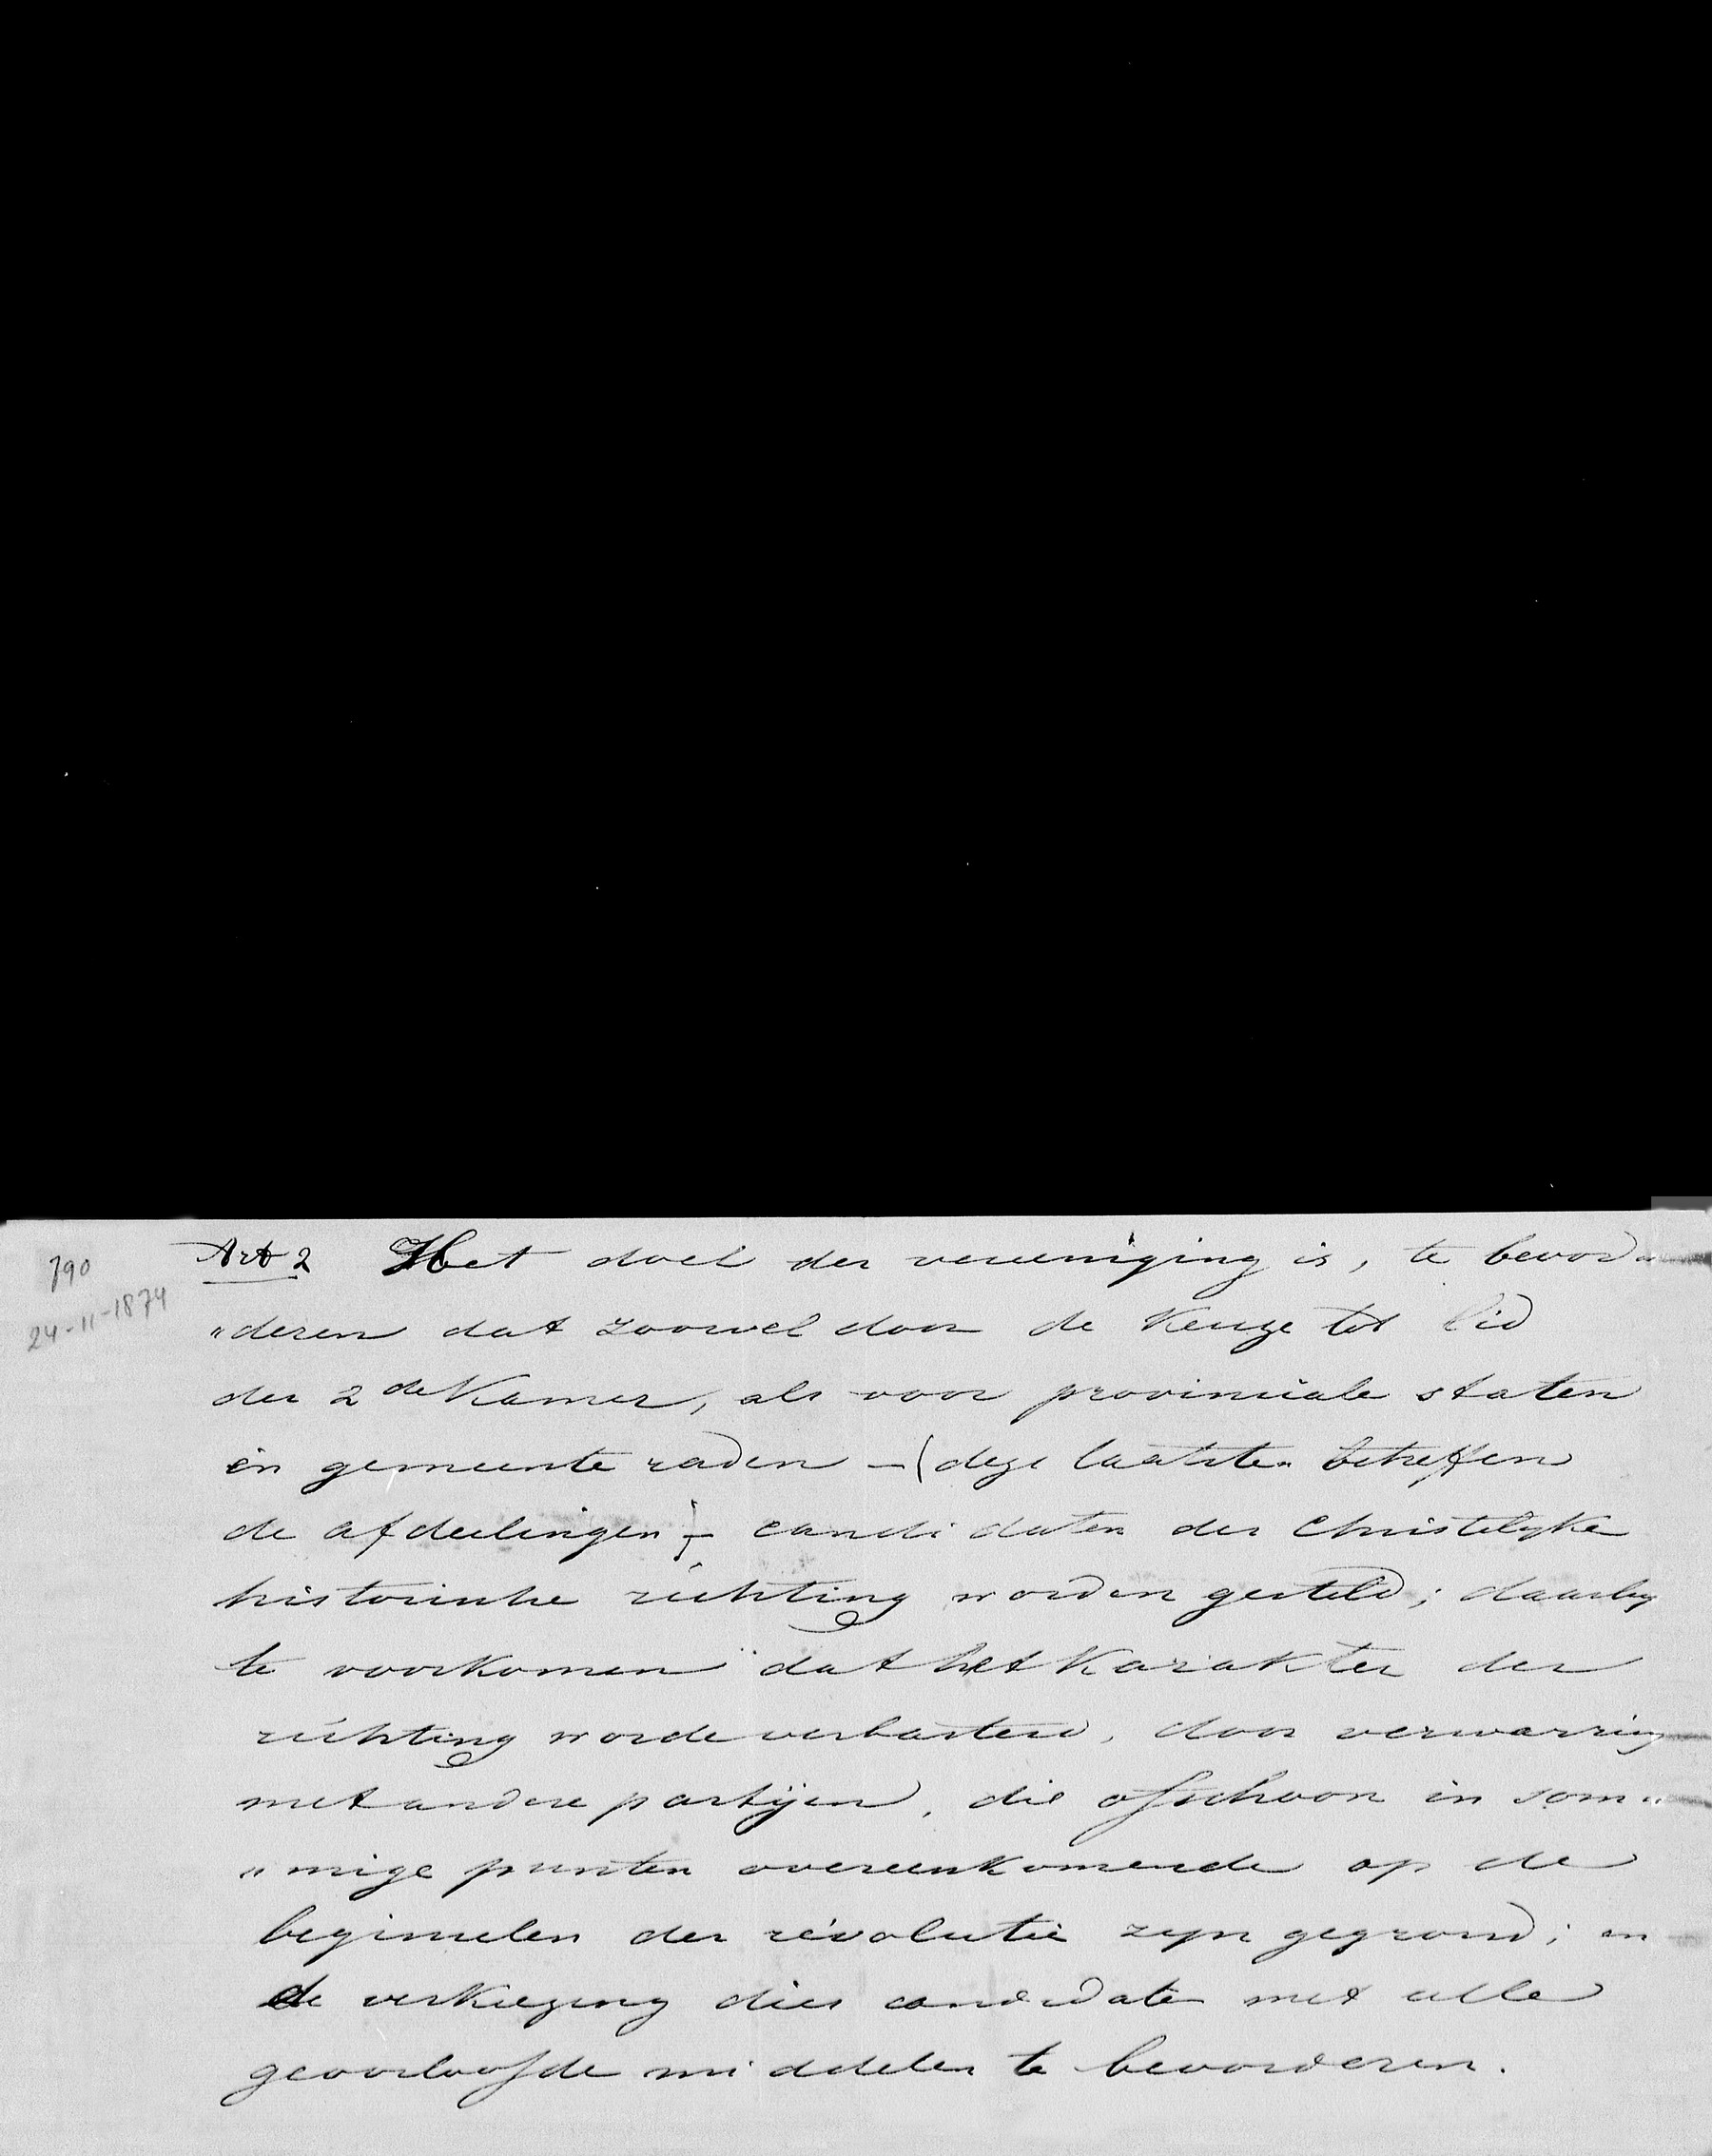 790
24-11-1874
Art 2 Het doel der vereeniging is, te bevor„
„deren dat zoowel door de keuze tot lid
der 2de Kamer, als voor provinciale staten
en gemeente raden – (deze laatsten betreffen
de afdeelingen) – candidaten der Christelyke
historische richting worden gesteld; daarby
te voorkomen dat het karakter der
richting worde verbasterd, door verwarring
met andere partijen, die ofschoon in som„
„mige punten overeenkomende op de
beginselen der révolutie zyn gegrond; en
de verkiezing dier candidaten met alle
geoorloofde middelen te bevorderen.